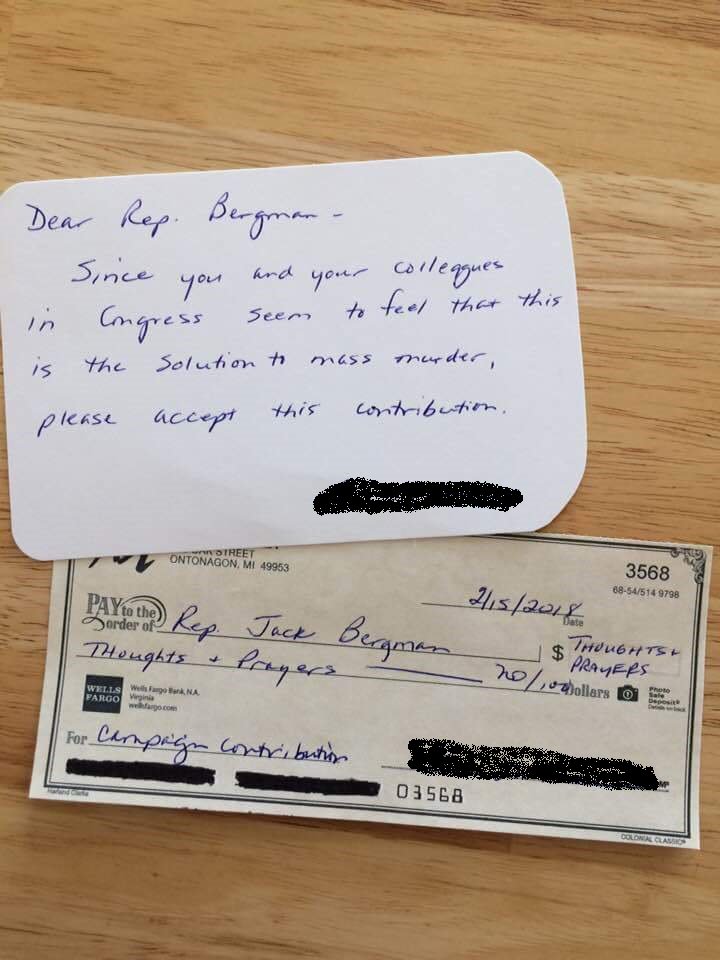 Dear Rep. Bergman -
Since you and your colleagues
in Congress seem to feel that this
is the solution to mass murder,
please accept this contribution.
OAK STREET
ONTONAGON, MI 49953
3568
68-54/514 9798
2/15/2018
Date
PAY to the order of Rep. Jack Bergman
$ THOUGHTS + PRAYERS
Thoughts + Prayers no/100 Dollars
Photo Safe Deposit®
Details on back
WELLS FARGO
Wells Fargo Bank, N.A.
Virginia
wellsfargo.com
For Campaign Contribution
MP
03568
Harland Clarke
COLONIAL CLASSIC®